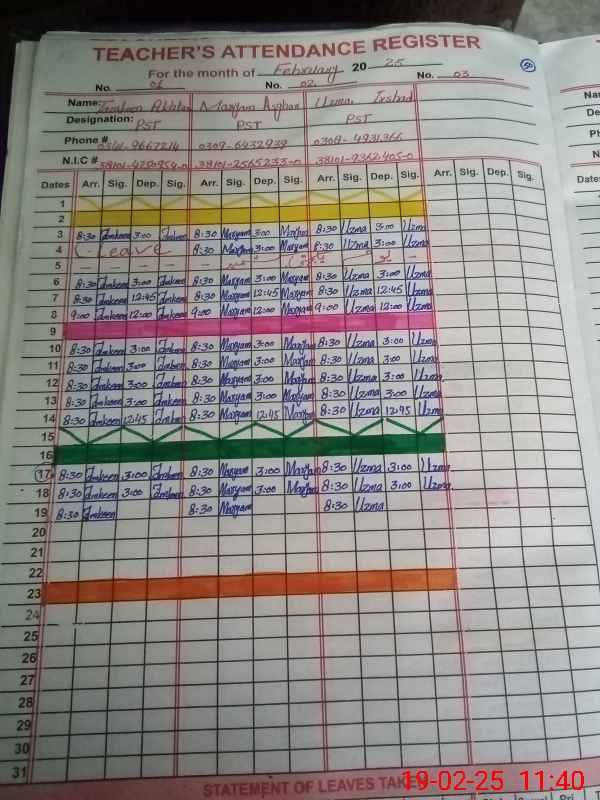 TEACHER'S ATTENDANCE REGISTER
For the month of February 20 25
50
No. 01 No. 02 No. 03
Name: Akhtar Maryam Asghar Uzma Irshad
Designation: PST PST PST
Phone # 0341-9667214 0309-6432939 0308-4931366
N.I.C # 38101-4750954-0 38101-2565233-0 38101-9362405-0
Dates Arr. Sig. Dep. Sig. Arr. Sig. Dep. Sig. Arr. Sig. Dep. Sig. Arr. Sig. Dep. Sig.
1
2
3 8:30 3:00 8:30 Maryam 3:00 Maryam 8:30 Uzma 3:00 Uzma
4 Leave 8:30 Maryam 3:00 Maryam 8:30 Uzma 3:00 Uzma
5
6 8:30 3:00 8:30 Maryam 3:00 Maryam 8:30 Uzma 3:00 Uzma
7 8:30 12:45 8:30 Maryam 12:45 Maryam 8:30 Uzma 12:45 Uzma
8 9:00 12:00 9:00 Maryam 12:00 Maryam 9:00 Uzma 12:00 Uzma
9
10 8:30 3:00 8:30 Maryam 3:00 Maryam 8:30 Uzma 3:00 Uzma
11 8:30 3:00 8:30 Maryam 3:00 Maryam 8:30 Uzma 3:00 Uzma
12 8:30 3:00 8:30 Maryam 3:00 Maryam 8:30 Uzma 3:00 Uzma
13 8:30 3:00 8:30 Maryam 3:00 Maryam 8:30 Uzma 3:00 Uzma
14 8:30 12:45 8:30 Maryam 12:45 Maryam 8:30 Uzma 12:45 Uzma
15
16
17 8:30 3:00 8:30 Maryam 3:00 Maryam 8:30 Uzma 3:00 Uzma
18 8:30 3:00 8:30 Maryam 3:00 Maryam 8:30 Uzma 3:00 Uzma
19 8:30 8:30 Maryam 8:30 Uzma
20
21
22
23
24
25
26
27
28
29
30
31
STATEMENT OF LEAVES
19-02-25 11:40